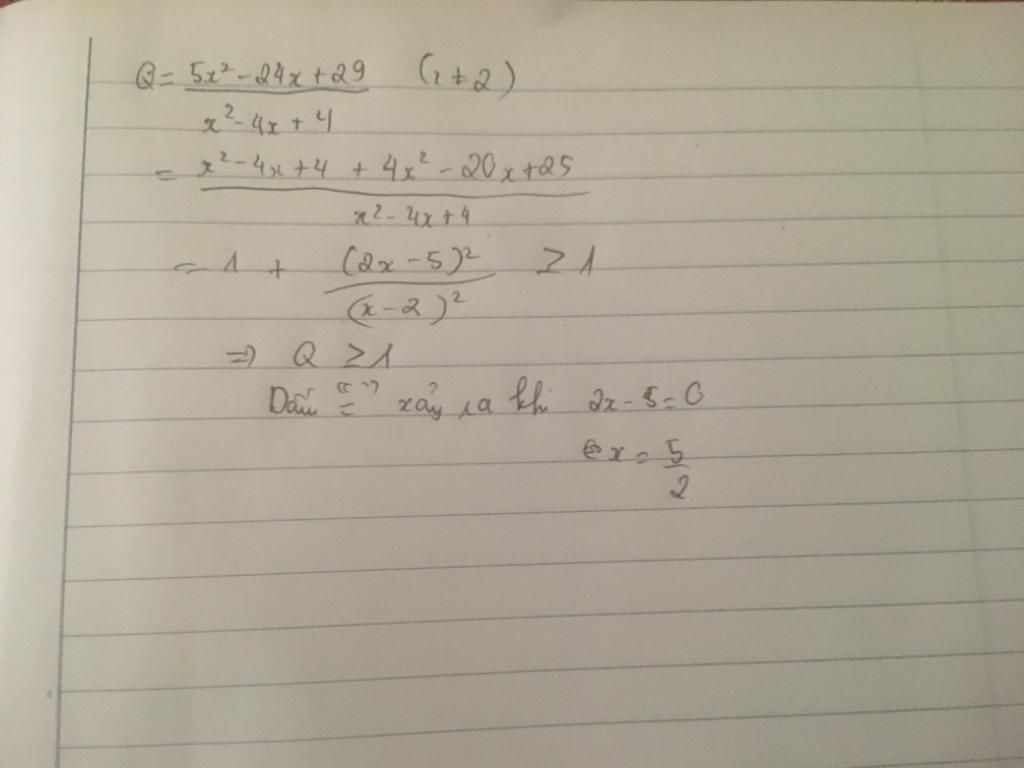 Q = (5x² - 24x + 29) / (x² - 4x + 4) (x ≠ 2)
= (x² - 4x + 4 + 4x² - 20x + 25) / (x² - 4x + 4)
= 1 + (2x - 5)² / (x - 2)² ≥ 1
⇒ Q ≥ 1
Dấu "=" xảy ra khi 2x - 5 = 0
⇔ x = 5/2